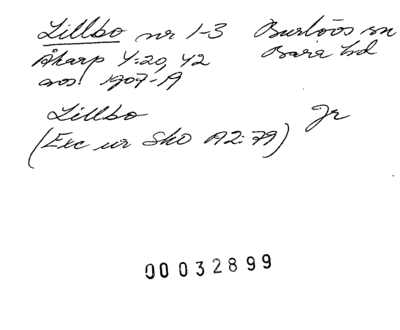 Lillbo nr 1-3 Burlövs sn
Åkarp 4:20, 42 Bara hd
avs. 1907-A
Lillbo Jr
(Exc ur Sko A2:79)
00032899